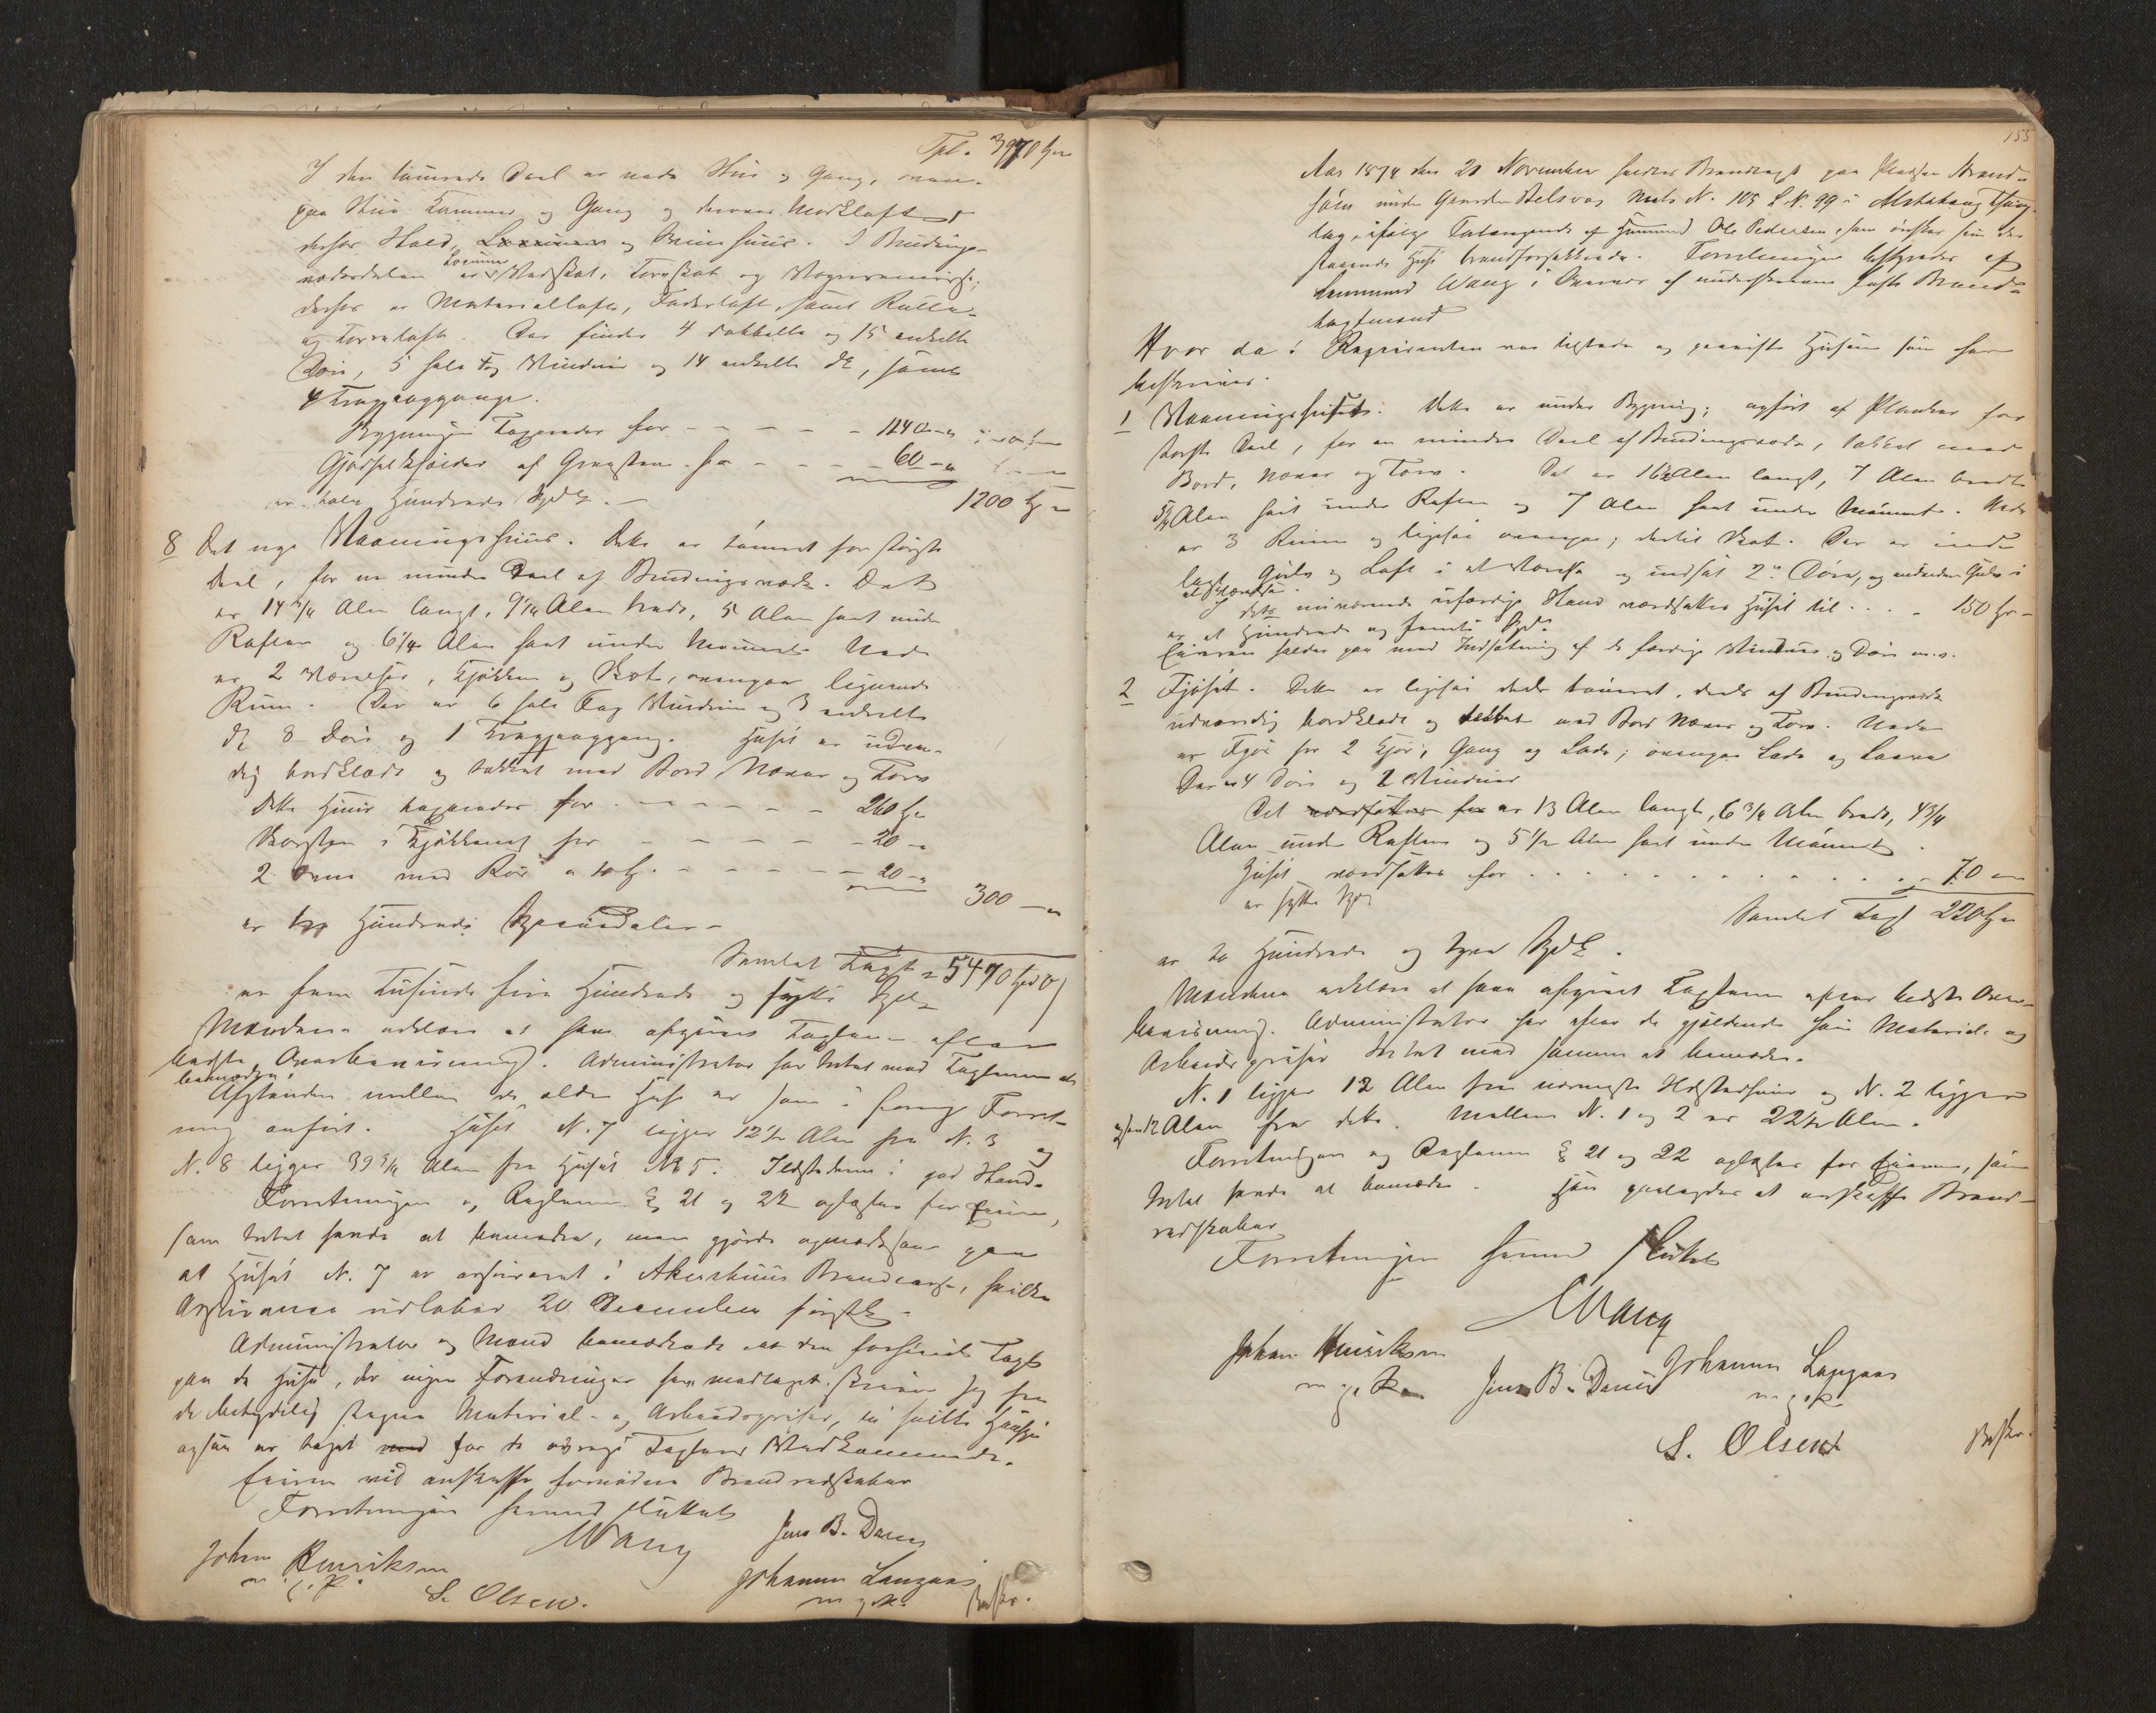 Tpl. 3970
I den tømrede Deel er nede Stue og Gang, oven-
paa Stue Kammer og Gang og derover Mørkloft
derfor Stald, og Grimehuus. I Bindings-
værksdelen er Locumer Vedskot, Tørvskot og
derfor er Materialloft, Foderloft, samt Rulle-
og Tørveloft. Der findes 4 dobbelte og 15 enkelte
Døre, 5 hele Fag Vinduer og 14 enkelte do, samt
4 Trappeopgange.
Bygningen Taxeredes for - - - - - 1140 -
Gjødselkjælder af Graasteen for - - - - 60 -
er tolv Hundrede Spdlr. - 1200
8 Det nye Vaaningshuus. Dette er tømret for største
Deel, for en mindre Deel af Bindingsværk. Det
er 14 3/4 Alen langt, 9 1/4 Alen bredt, 5 Alen høit under
Raften og 6 1/4 Alen høit under Mønnet. Nede
er 2 Værelser, Kjøkken og Skot, ovenpaa lignende
Rum. Der er 6 hele Fag Vinduer og 3 enkelte
do 8 Døre og 1 Trappeopgang. Huset er udven-
dig bordklædt og tækket med Bord Næver og Torv
Dette Huus taxeredes for - - - - - 260
Skorsten i Kjøkkenet for - - - - - 20 -
2 Ovne med Rør a 10 - - - - - 20 -
300 -
er tre Hundrede Speciedaler -
Samlet Taxt = 5470
er fem Tusinde fire Hundrede og sytti Spd.
Mændene erklære at have afgivet Taxterne efter
bedste Overbeviisning. Administrator har Intet mod Taxterne at
bemærke.
Afstanden mellem de ældre Huse er som i forrige Forret-
ning anført. Huset N. 7 ligger 12 1/2 Alen fra N. 3 og
N. 8 ligger 39 3/4 Alen fra Huset N. 5. Ildstederne i god Stand.
Forretningen og Reglerne § 21 og 22 oplæstes for Eieren,
som Intet havde at bemærke, men gjorde opmærksom paa
at Huset N. 7 er assureret i Akershuus Brandcasse, hvilken
Assurance udløber 20 December førstk.
Administrator og Mænd bemærkede at den forhøiede Taxt
paa de Huse, der ingen Forandringer have modtaget, skriver sig fra
de betydelig stegne Material- og Arbeidspriser, til hvilke Hensyn
ogsaa er taget for de øvrige Taxters Vedkommende.
Eieren vil anskaffe fornødne Brandredskaber
Forretningen hermed sluttet
Wang Jens B. Dænes
Johan Henriksen
m. p. P.
Johannes Langaas
m. p. P.
S. Olsen. Beskr.
155
Aar 1874 den 20 November holdtes Brandtaxt paa Pladsen Strand-
søen under Gaarden Belsvaag Mat. N. 105 L. N. 99 i Alstahaug Thing-
lag, ifølge Forlangende af Huusmand Ole Pedersen, som ønsker sine der
staaende Huse brandforsikkrede. Forretningen bestyredes af
Lensmand Wang i Overvær af underskrevne faste Brand-
taxtmænd
Hvor da! Reqvirenten var tilstede og paaviste Husene som her
beskrives.
1 Vaaningshuset. Dette er under Bygning; opført af Planker for
største Deel, for en mindre Deel af Bindingsværk, tækket med
Bord, Næver og Torv. Det er 16 1/2 Alen langt, 7 Alen bredt
5 1/4 Alen høit under Raften og 7 Alen høit under Mønnet. Nede
er 3 Rum og ligesaa ovenpaa; dertil Skot. Der er inde
lagt Gulv og Loft i et Værelse og indsat 2 Døre, og endvidere Gulv i
et Værelse.
I dets nuværende ufærdige Stand værdsattes Huset til . . . - 150
er et Hundrede og femti Spd.
Eieren holder paa med Indsætning af de færdige Vinduer og Døre m. v.
2 Fjøset. Dette er ligesaa deels tømret, deels af Bindingsværk
udvendig bordklædt og tækket med Bord Næver og Torv. Nede
er Fjøs for 2 Kjør, Gang og Lade; ovenpaa Lade og Laave
Der er 4 Døre og 2 Vinduer
Det værdsættes for er 13 Alen langt, 6 3/4 Alen bredt, 4 3/4
Alen under Raften og 5 1/2 Alen høit under Mønnet.
Huset værdsattes for . . . . . . . . . . 70 -
er sytti Spd
Samlet Taxt 220
er to Hundrede og tyve Spdlr.
Mændene erklære at have afgivet Taxterne efter bedste Over-
beviisning. Administrator har efter de gjældende høie Material- og
Arbeidspriser Intet mod samme at bemærke.
N. 1 ligger 12 Alen fra nærmeste Ildstedhuus og N. 2 ligger
ogsaa 12 Alen fra dette. Mellem N. 1 og 2 er 22 1/2 Alen.
Forretningen og Reglerne § 21 og 22 oplæstes for Eieren, som
Intet havde at bemærke. Han paalagdes at anskaffe Brand-
redskaber
Forretningen hermed sluttet
Wang
Johan Henriksen
m. p. P.
Jens B. Dænes Johannes Langaas
m. p. P.
S. Olsen Beskr.